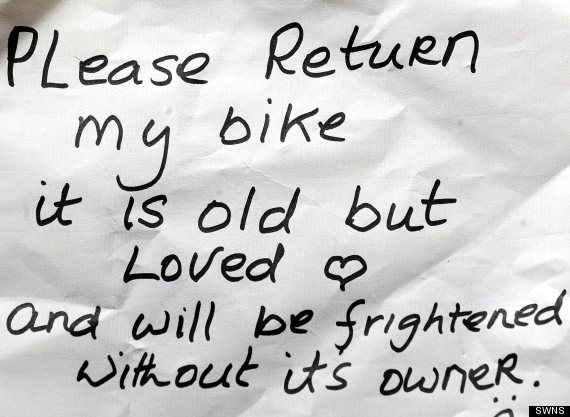 PLease Return
my bike
it is old but
Loved ♡
and will be frightened
without it's owner.
SWNS